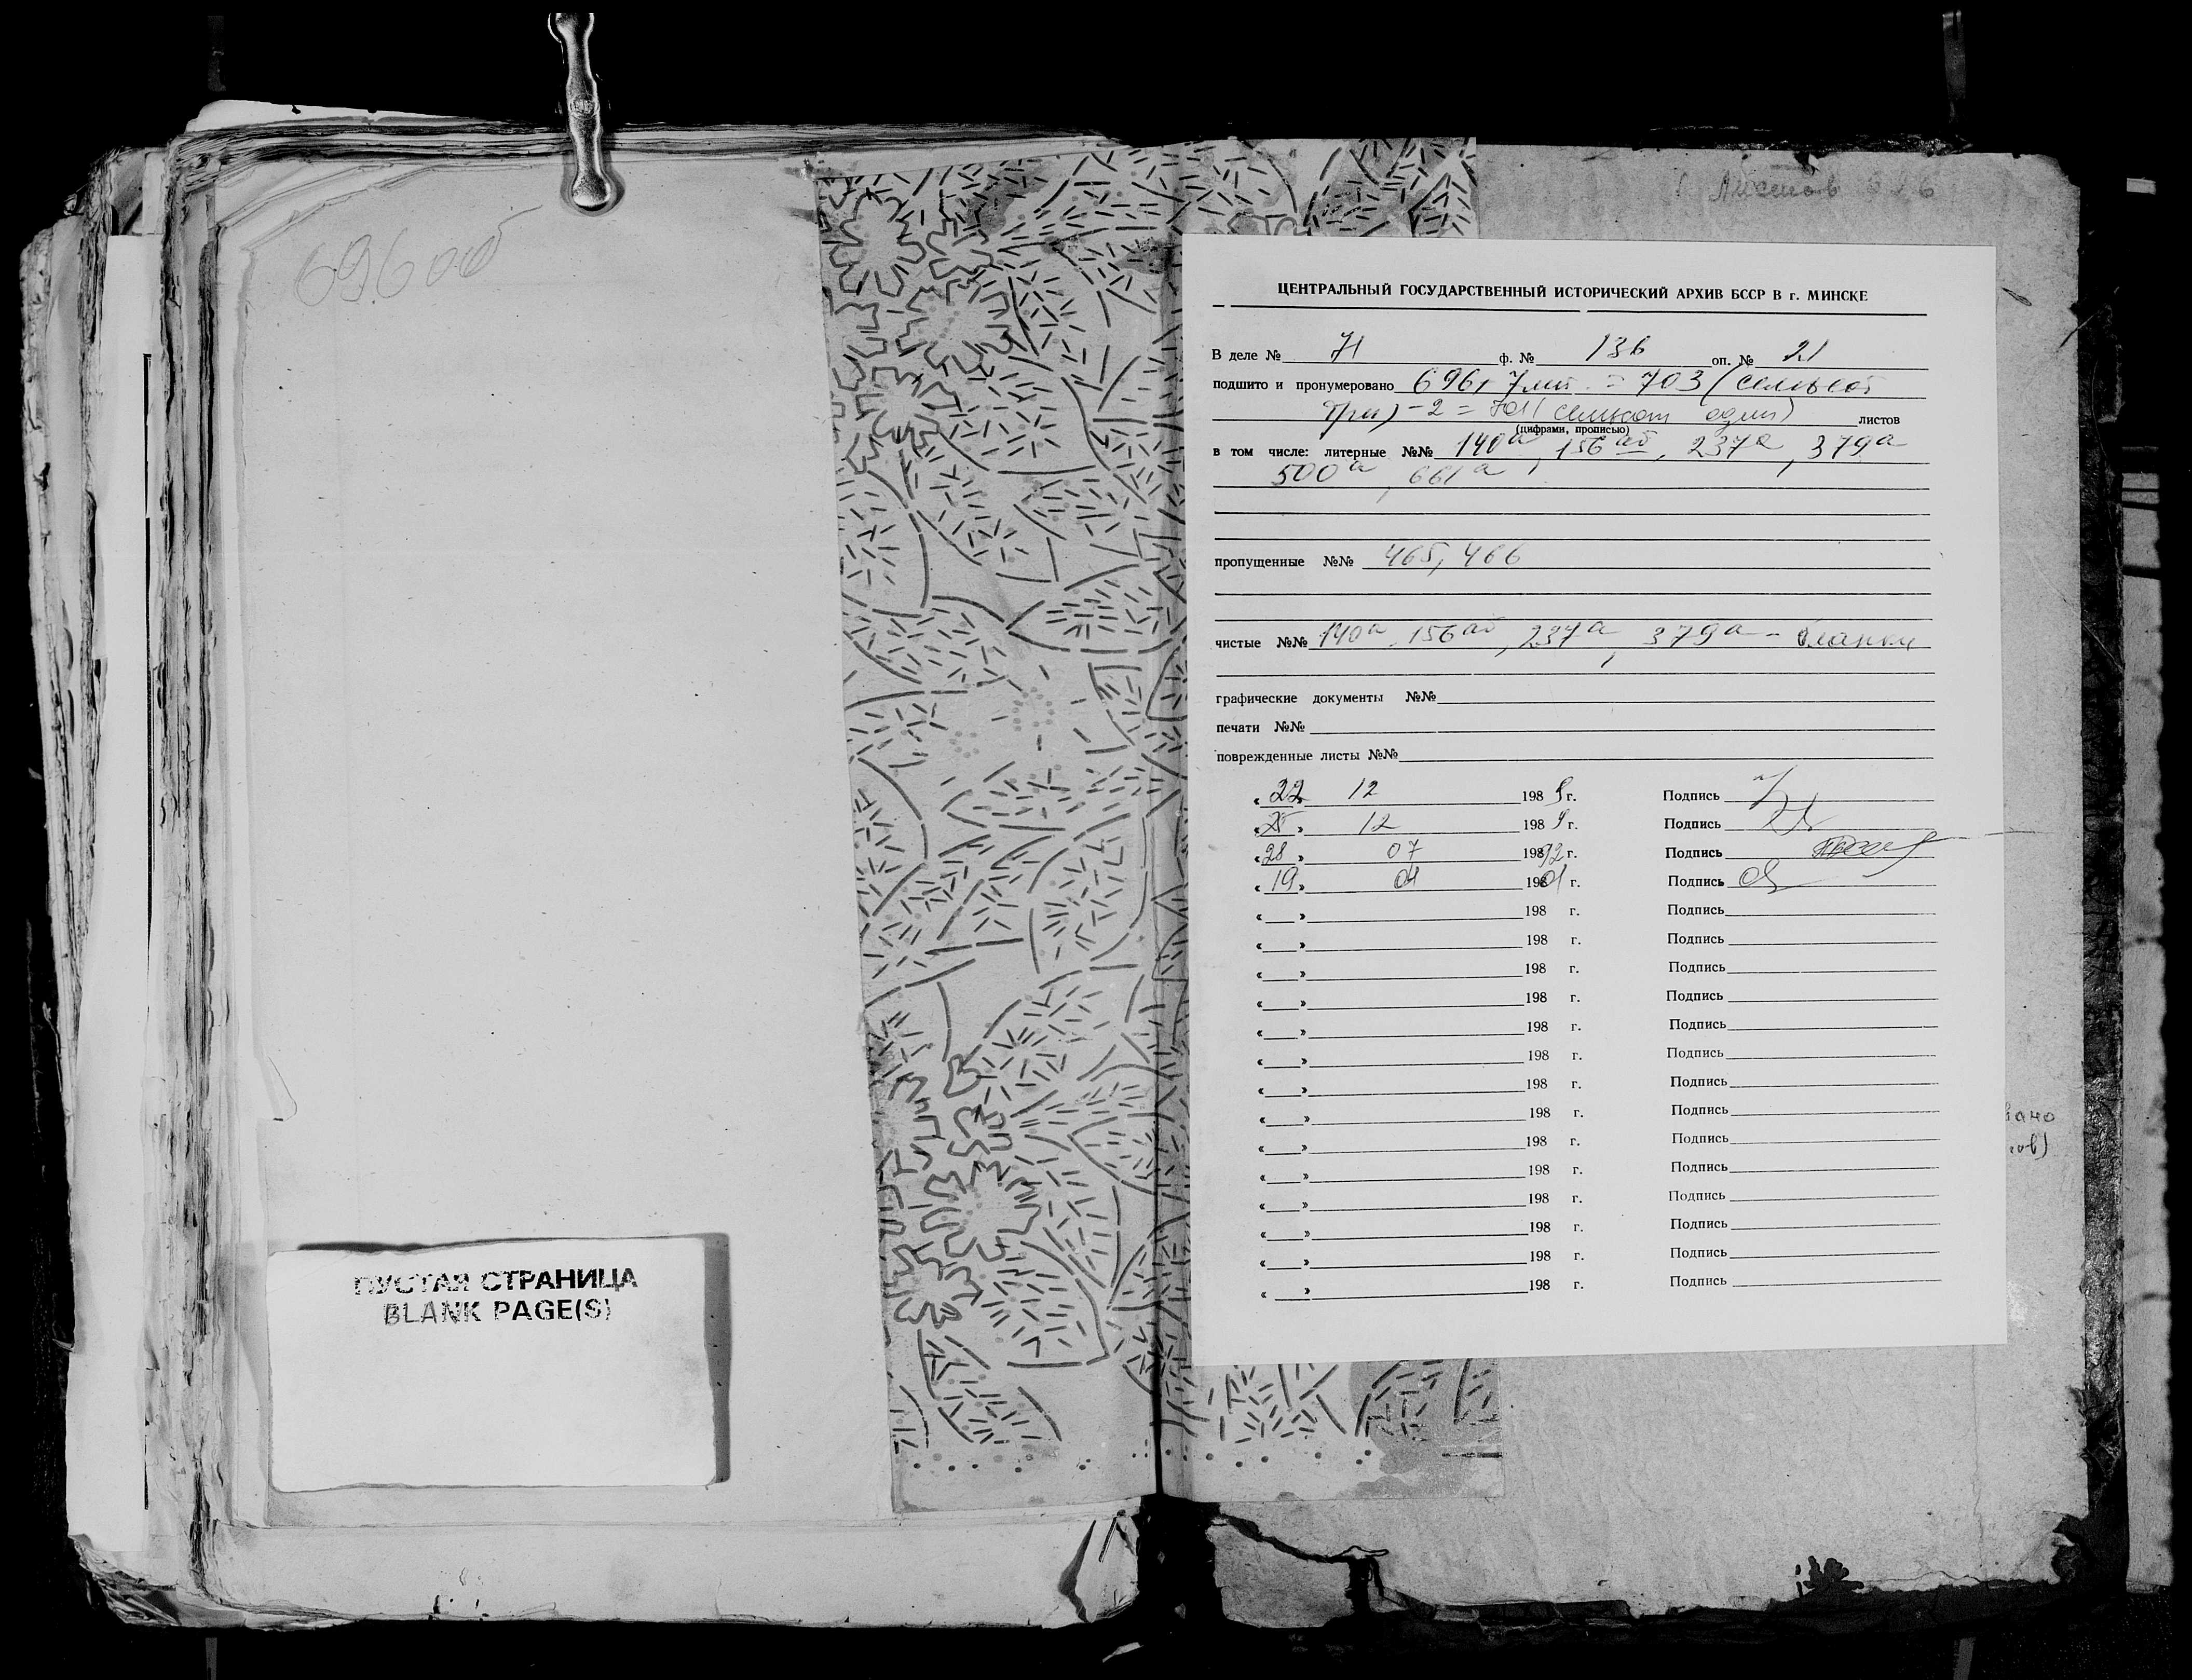 696 об
ПУСТАЯ СТРАНИЦА
BLANK PAGE(S)
Листов 696
ЦЕНТРАЛЬНЫЙ ГОСУДАРСТВЕННЫЙ ИСТОРИЧЕСКИЙ АРХИВ БССР В г. МИНСКЕ
В деле № 71 ф. № 136 оп. № 21
подшито и пронумеровано 696+7лит. = 703 (семьсот
три) - 2 = 701 (семьсот один) листов
(цифрами, прописью)
в том числе: литерные №№ 140а, 156аб, 237а, 379а
500а, 661а
пропущенные №№ 465, 466
чистые №№ 140а, 156аб, 237а, 379а - бланки
графические документы №№
печати №№
поврежденные листы №№
« 22 » 12 1989 г. Подпись
« » 12 1989 г. Подпись
« 28 » 07 19892 г. Подпись
« 19 » 04 19801 г. Подпись
« » 198 г. Подпись
« » 198 г. Подпись
« » 198 г. Подпись
« » 198 г. Подпись
« » 198 г. Подпись
« » 198 г. Подпись
« » 198 г. Подпись
« » 198 г. Подпись
« » 198 г. Подпись
« » 198 г. Подпись
« » 198 г. Подпись
« » 198 г. Подпись
« » 198 г. Подпись
« » 198 г. Подпись
вано
ов)